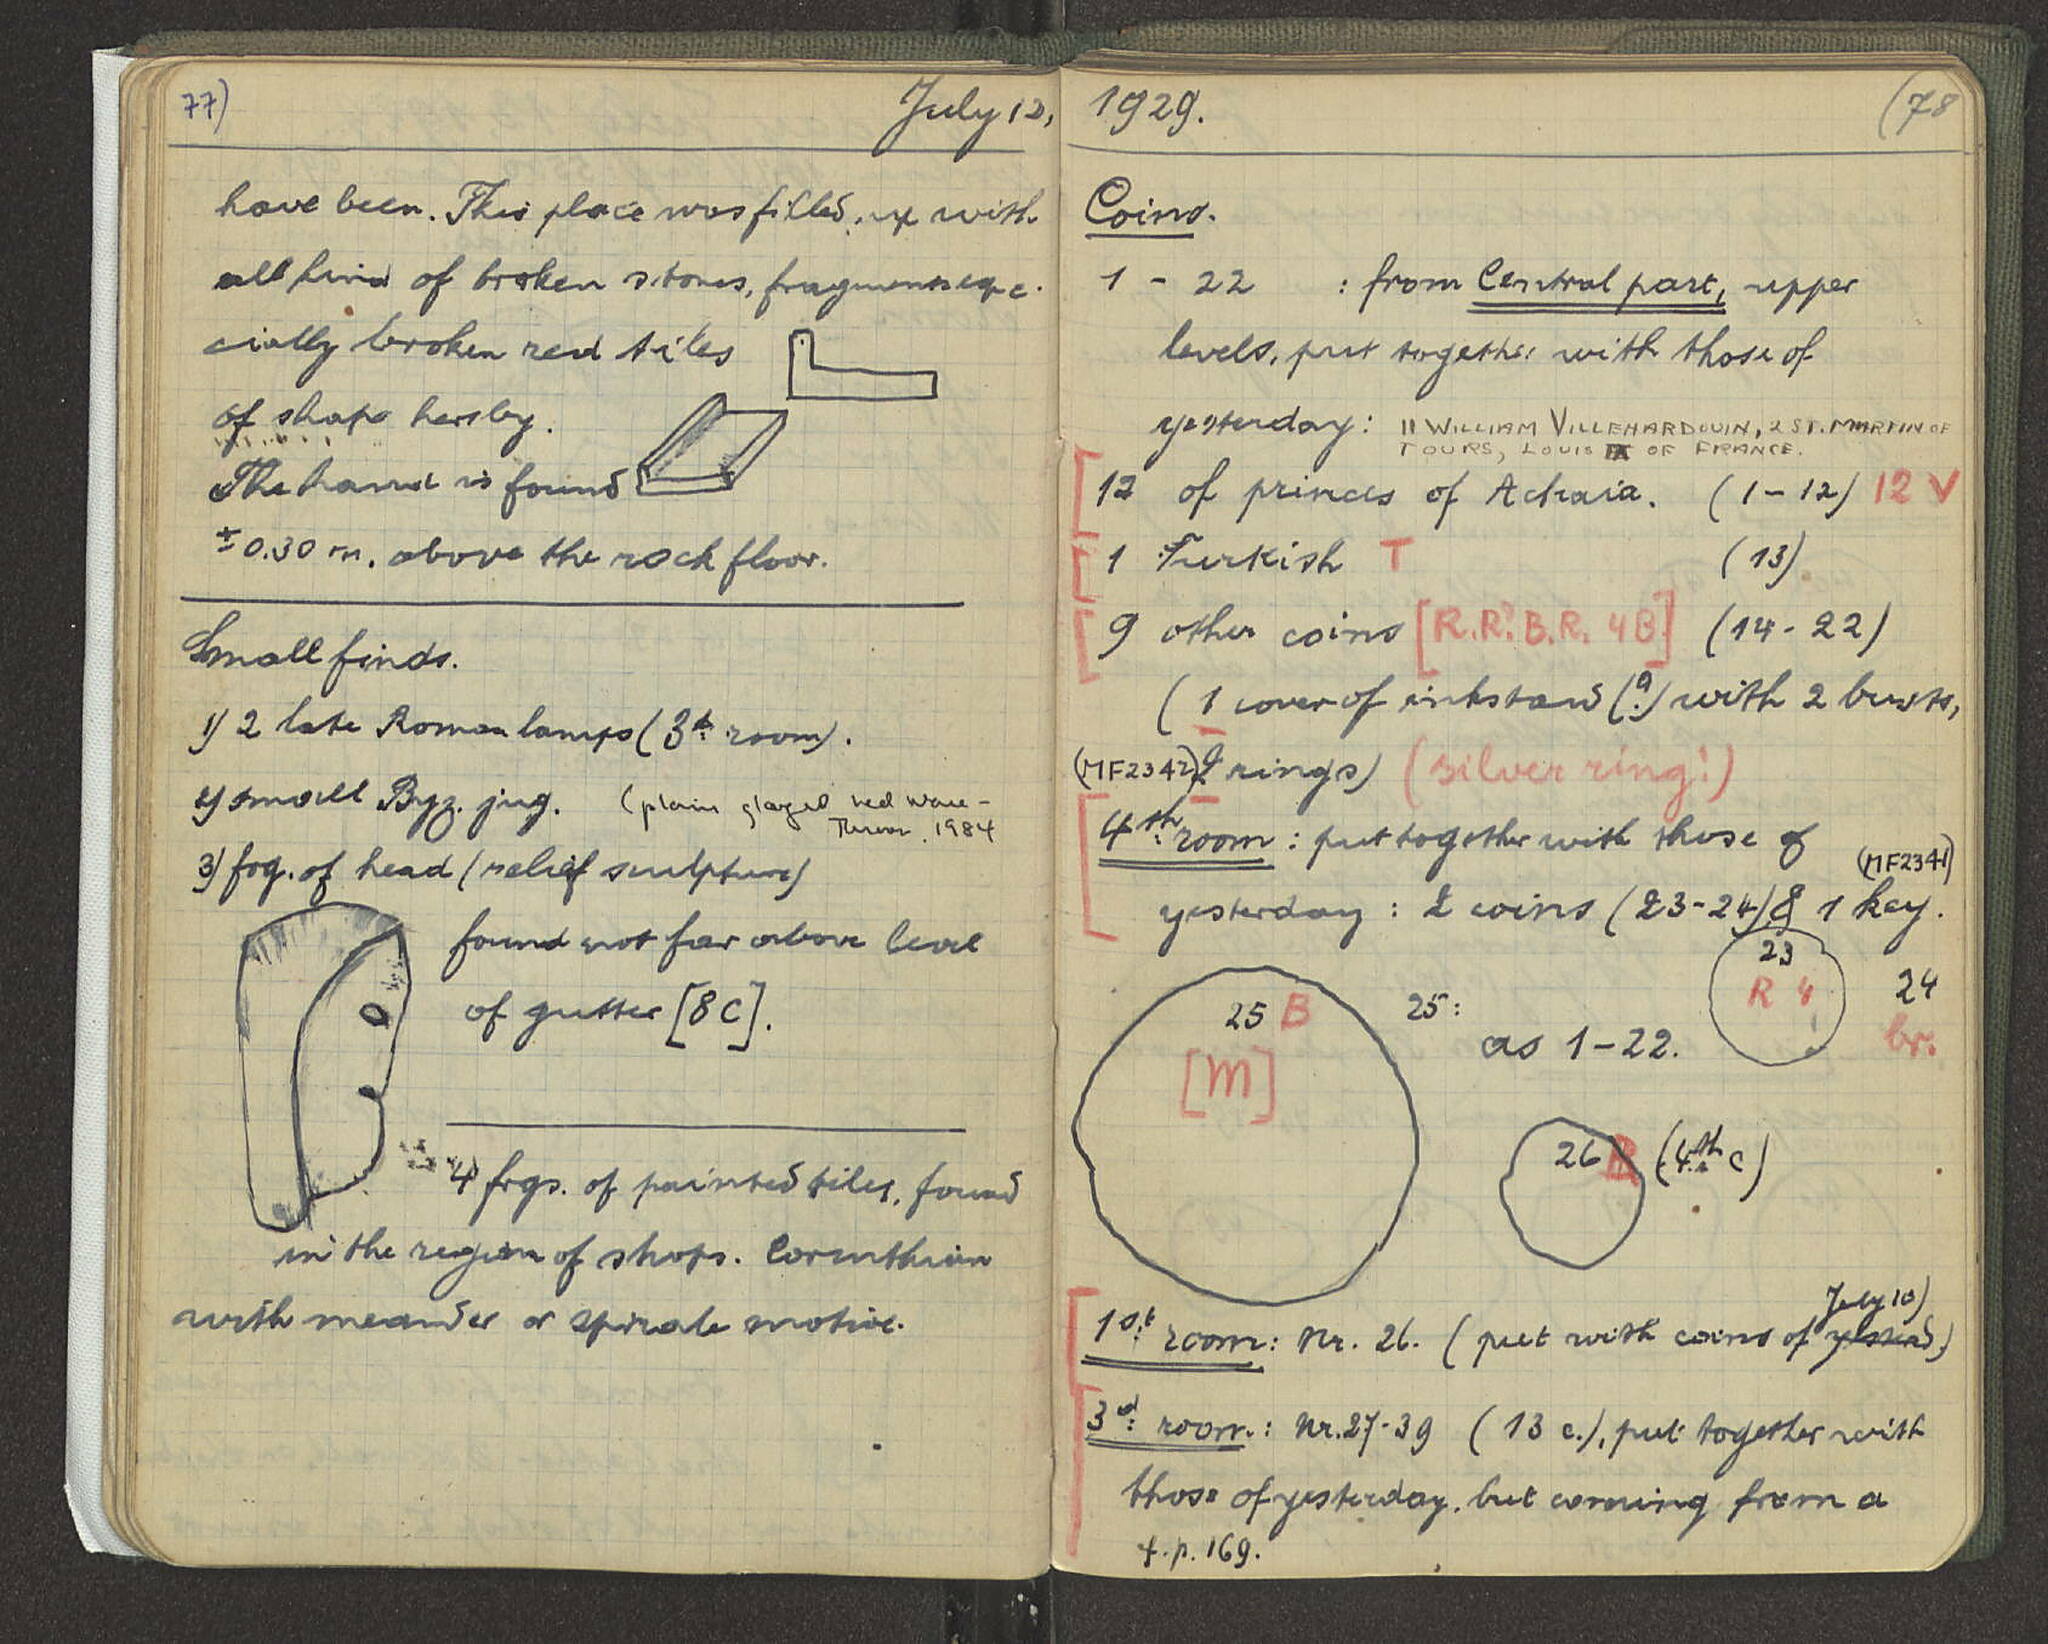 77)
July 12,
have been. This place was filled up with
all kind of broken stones, fragments espe-
cially broken red tiles
of shape hersby.
The hand is found
± 0.30 m. above the rock floor.
Small finds.
1) 2 late Roman lamps (3d room).
2) small Byz. jug. (plain glazed red ware -
1984
3) fog. of head (relief sculpture)
found not far above level
of gutter [8C].
4) frgs. of painted tiles, found
in the region of shops. Corinthian
with meander or spirale motive.
1929.
(78
Coins.
1 - 22 : from Central part, upper
levels, put together with those of
yesterday: 11 WILLIAM VILLEHARDOUIN, 2 ST. MARTIN OF
TOURS, LOUIS IX OF FRANCE.
12 of princes of Achaia. (1-12) 12 V
1 Turkish T (13)
9 other coins [R.R? B.R. 4B] (14-22)
(1 cover of inkstand (?) with 2 busts,
(MF2342) 2 rings) (silver ring!)
4th room: put together with those of
(MF2341)
yesterday: 2 coins (23-24) & 1 key.
23
R 4
24
br.
25 B
[M]
25:
as 1-22.
26 R (4th c)
July 10)
1st room: Nr. 26. (put with coins of yesterd.)
3d room: Nr. 27-39 (13 c.), put together with
those of yesterday, but coming from a
f. p. 169.